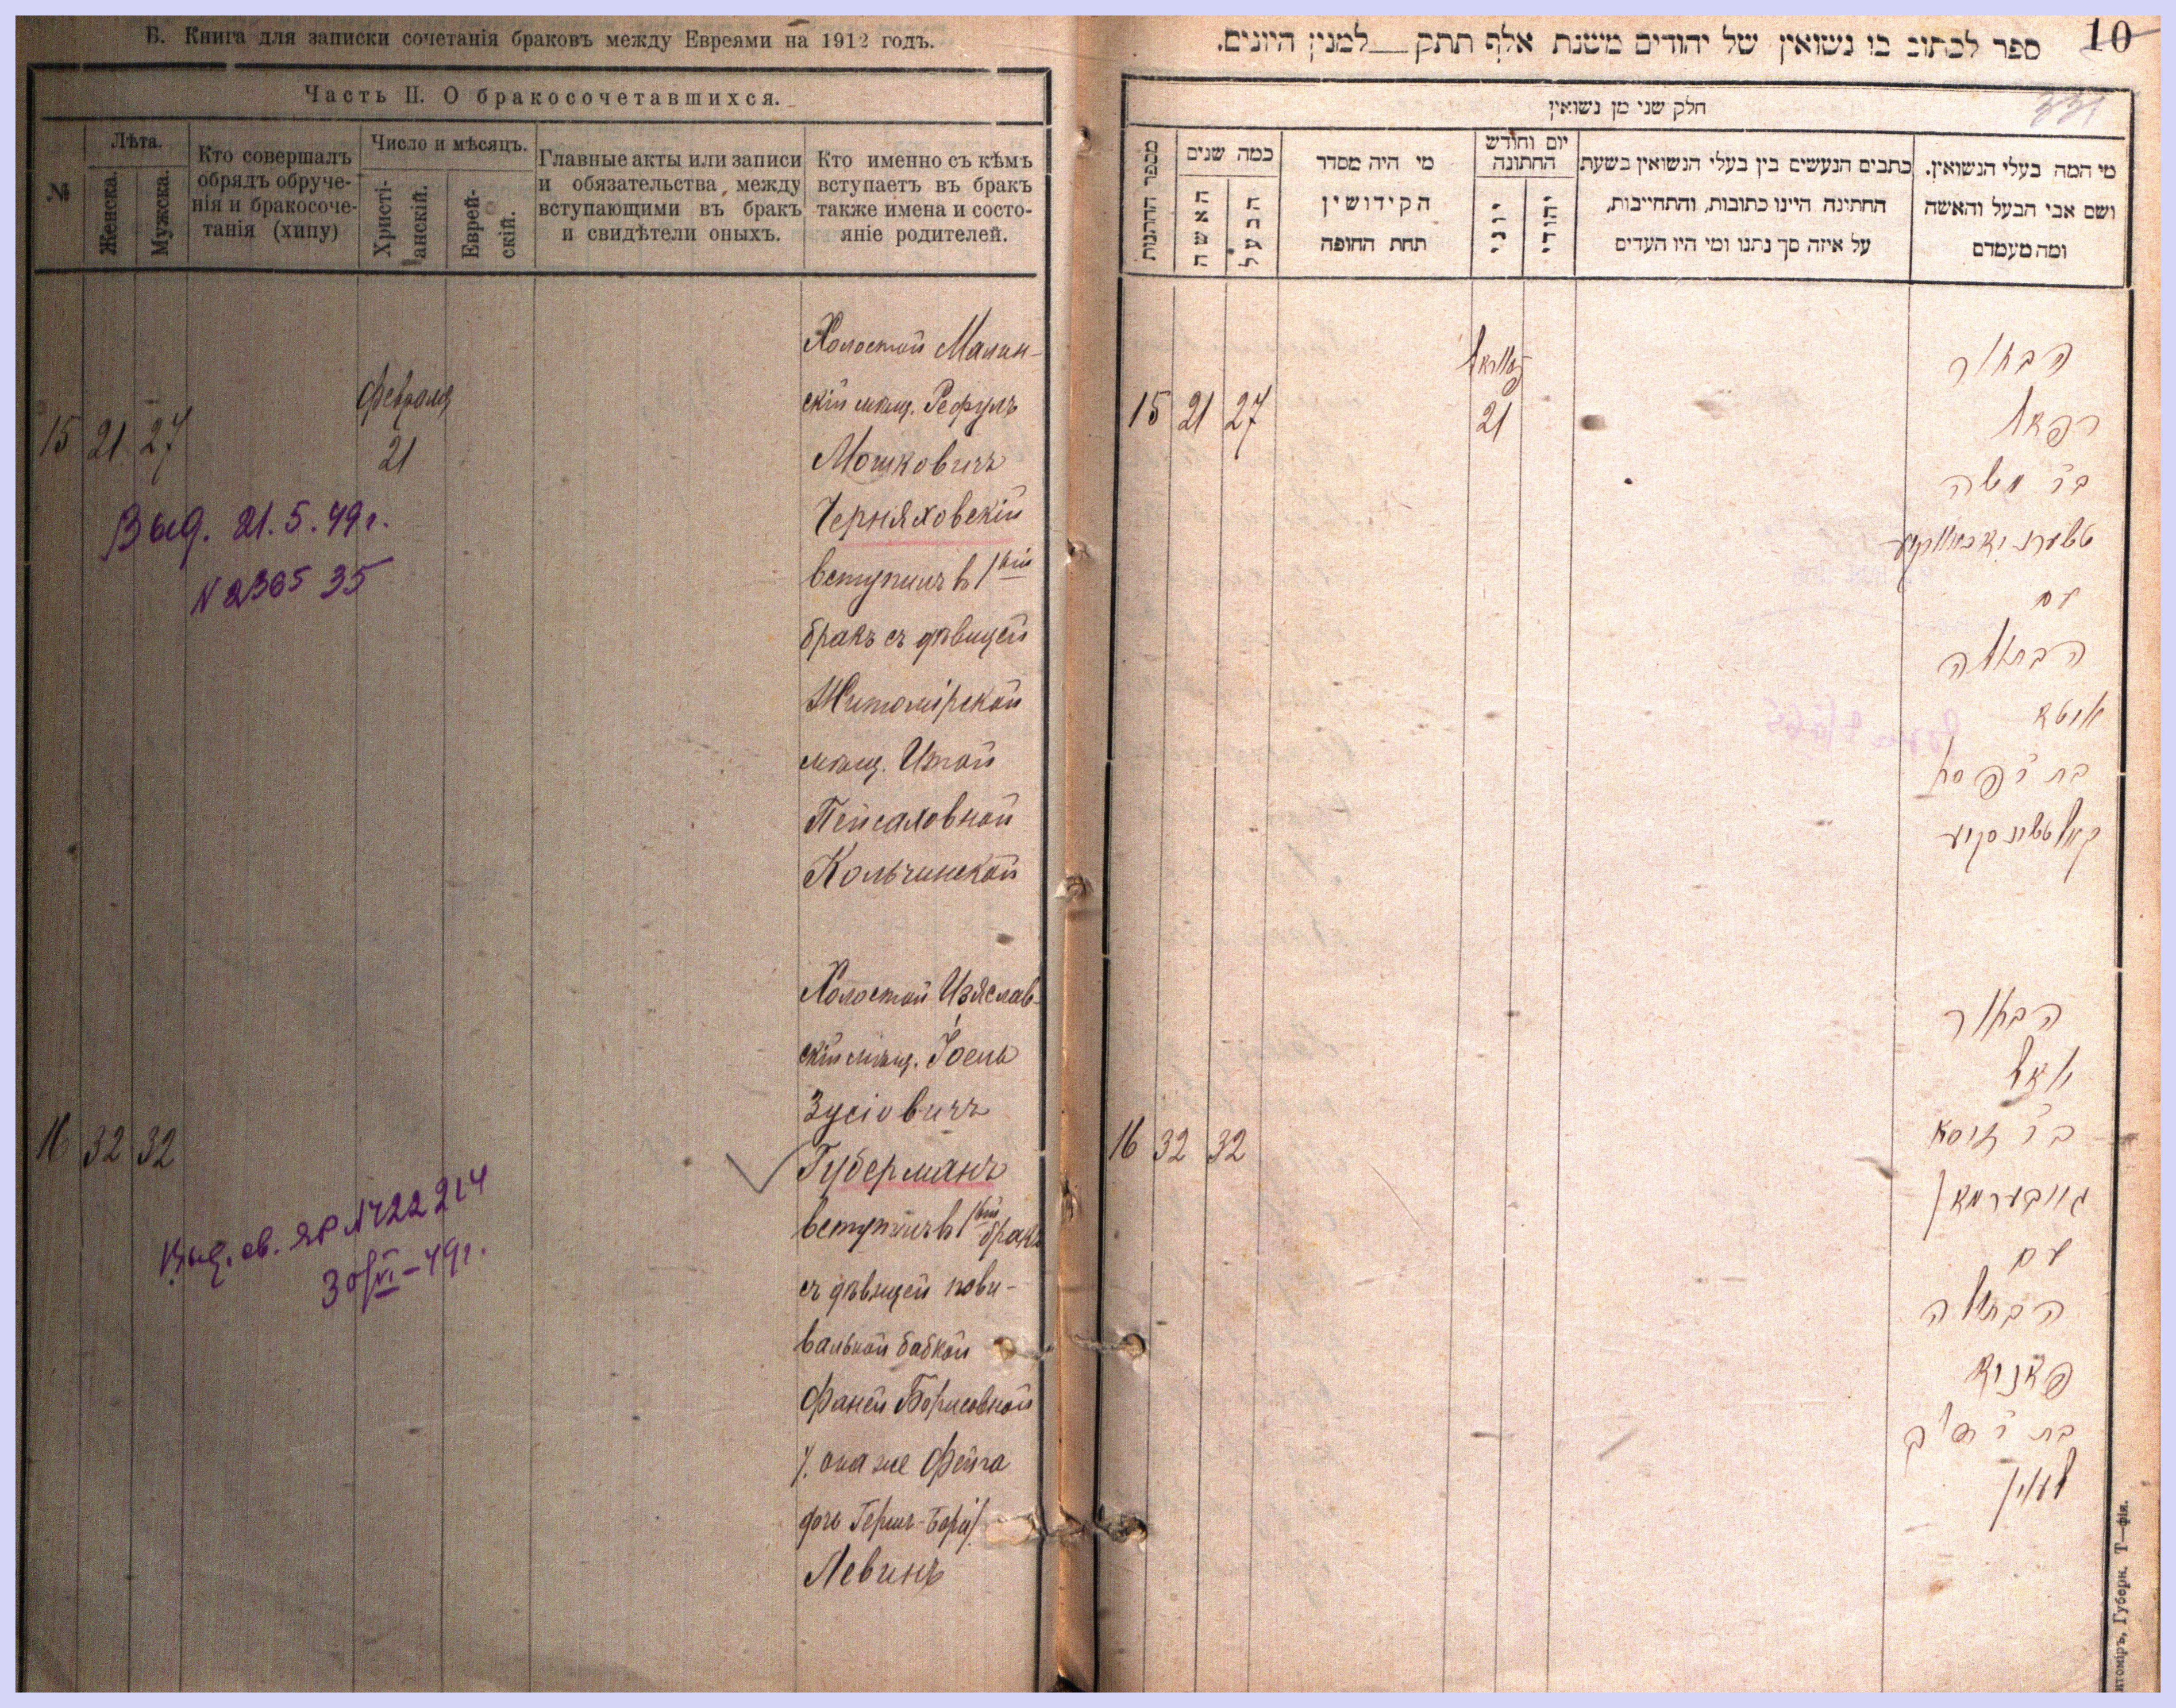 Б. Книга для записки сочетанія браковъ между Евреями на 1912 годъ.
Часть II. О бракосочетавшихся.
№
Лѣта.
Женска.
Мужска.
Кто совершалъ
обрядъ обруче-
нія и бракосоче-
танія (хипу)
Число и мѣсяцъ.
Христі-
анскій.
Еврей-
скій.
Главные акты или записи
и обязательства, между
вступающими въ бракъ
и свидѣтели оныхъ.
Кто именно съ кѣмъ
вступаетъ въ бракъ
также имена и состо-
яніе родителей.
15 21 27
Февраля
21
Холостой Малин-
скій мѣщ. Рефулъ
Мошковичъ
Черняховскій
вступилъ в 1вый
бракъ съ дѣвицей
Житомірской
мѣщ. Итой
Пейсаховной
Кольчинской
Выд. 21.5.49г.
N 236535
16 32 32
Холостой Изяслав-
скій мѣщ. Іоель
Зусіовичъ
Губерманъ
вступилъ в 1вый бракъ
съ дѣвицей пови-
вальной бабкой
Фаней Борисовной
/. она же Фейга
дочь Герш-Бера/.
Левинъ
Выд. св. ЯР №22214
30/VI-49г.
10
331
ספר לכתוב בו נשואין של יהודים משנת אלף תתק למנין היונים.
חלק שני מן נשואין
מספר החתונות
כמה שנים
האשה
הבעל
מי היה מסדר
הקידושין
תחת החופה
יום וחודש
החתונה
יוני
יהודי
כתבים הנעשים בין בעלי הנשואין בשעת
החתינה היינו כתובות, והתחייבות,
על איזה סך נתנו ומי היו העדים
מי המה בעלי הנשואין.
ושם אבי הבעל והאשה
ומה מעמדם
15 21 27
21
הבחור
רפאל
בר משה
טשערניאכאווסקיי
עם
הבתולה
איטא
בת ר פסח
קאלטשינסקיע
16 32 32
הבחור
יואל
בר זוסא
גוובערמאן
עם
הבתולה
פאניא
בת ר
לעווין
Житоміръ, Губерн. Т—фія.